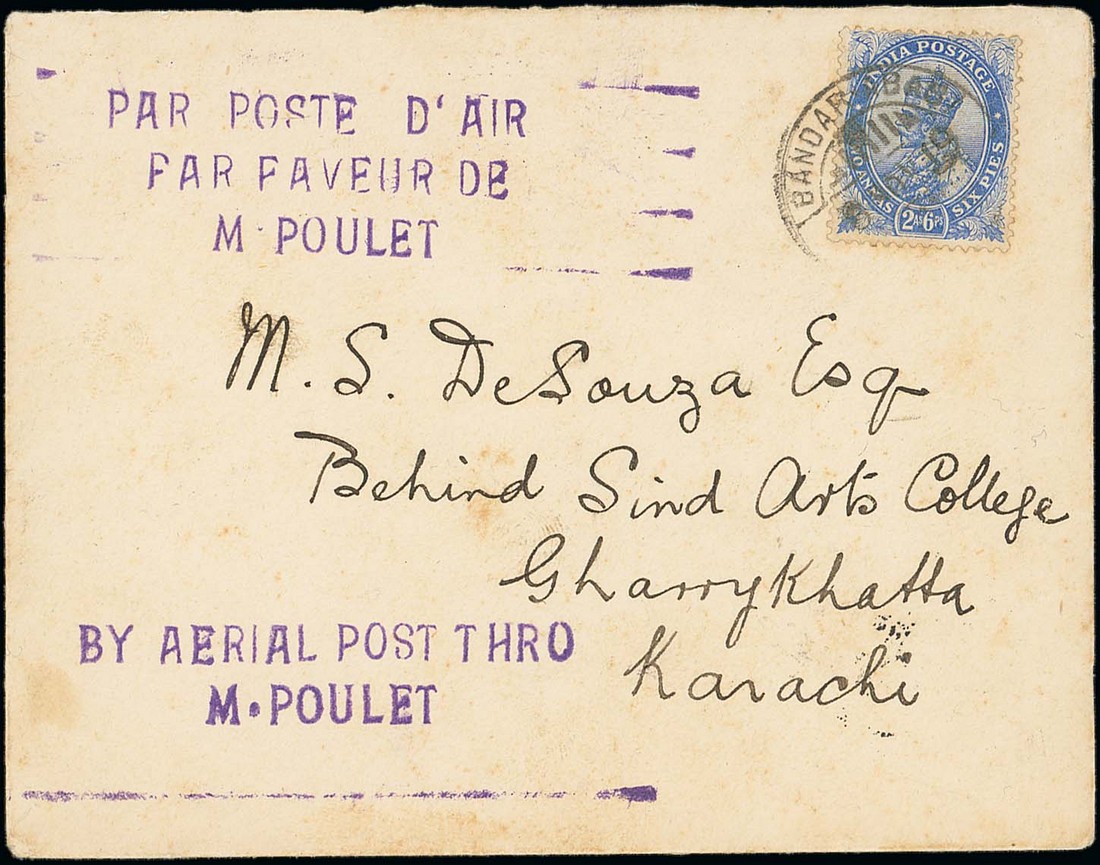 PAR POSTE D'AIR
FAR FAVEUR DE
M. POULET
INDIA POSTAGE
TWO ANNAS
2As6Ps
SIX PIES
BANDAR ABBAS
M. S. DeSouza Esq
Behind Sind Arts College
Gharrykhatta
Karachi
BY AERIAL POST THRO
M. POULET